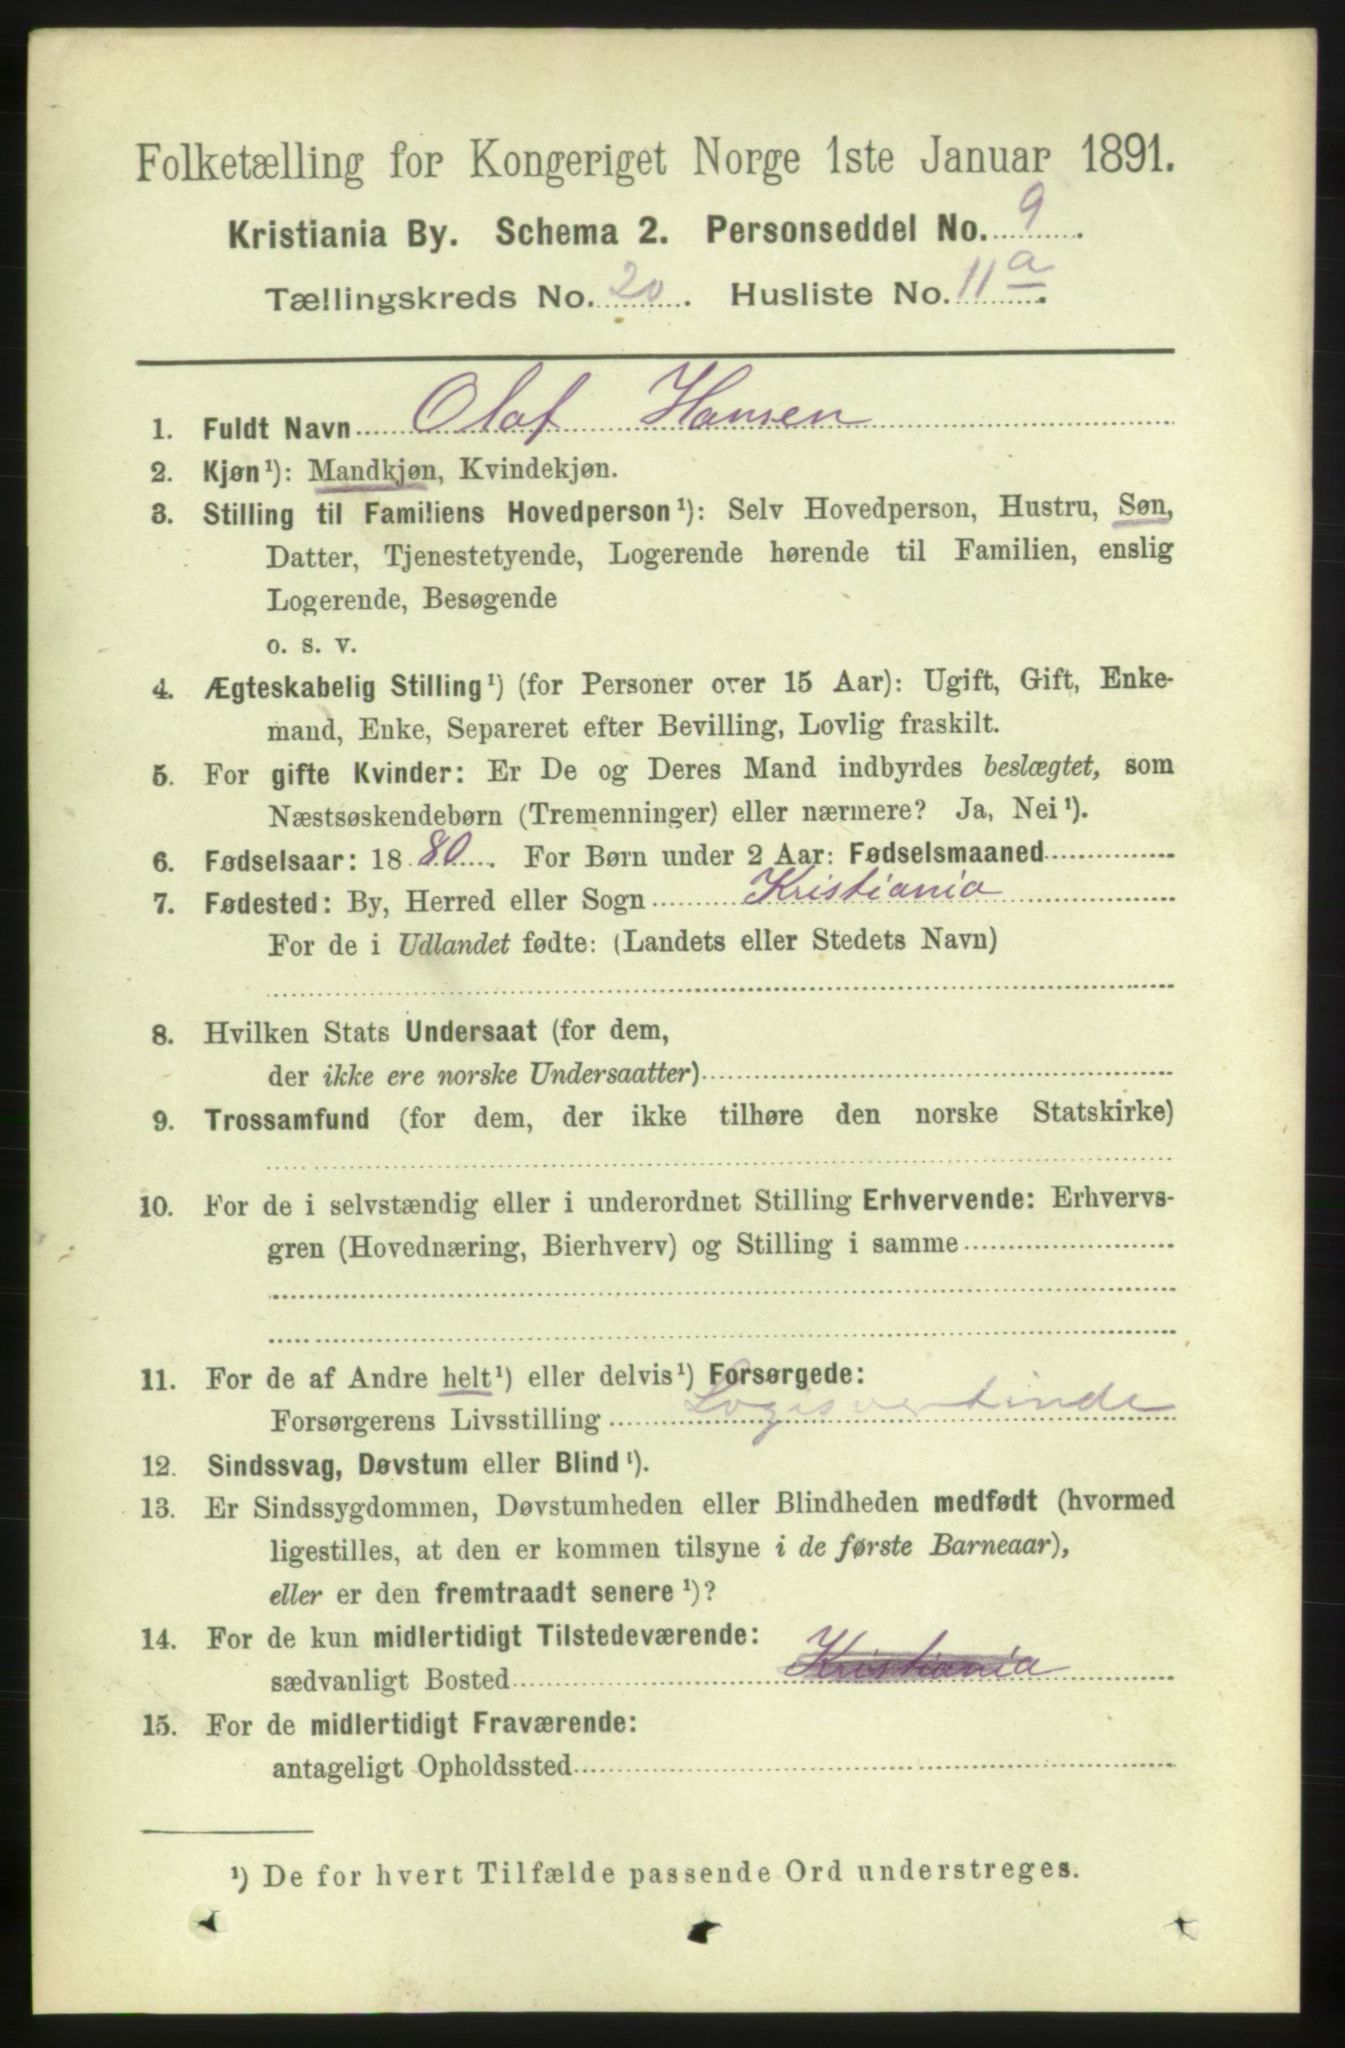 Folketælling for Kongeriget Norge 1ste Januar 1891.
Kristiania By. Schema 2. Personseddel No. 9.
Tællingskreds No. 20. Husliste No. 11a.
1. Fuldt Navn Olaf Hansen
2. Kjøn¹): Mandkjøn, Kvindekjøn.
3. Stilling til Familiens Hovedperson¹): Selv Hovedperson, Hustru, Søn,
Datter, Tjenestetyende, Logerende hørende til Familien, enslig
Logerende, Besøgende
o. s. v.
4. Ægteskabelig Stilling¹) (for Personer over 15 Aar): Ugift, Gift, Enke-
mand, Enke, Separeret efter Bevilling, Lovlig fraskilt.
5. For gifte Kvinder: Er De og Deres Mand indbyrdes beslægtet, som
Næstsøskendebørn (Tremenninger) eller nærmere? Ja, Nei¹).
6. Fødselsaar: 1880. For Børn under 2 Aar: Fødselsmaaned
7. Fødested: By, Herred eller Sogn Kristiania
For de i Udlandet fødte: (Landets eller Stedets Navn)
8. Hvilken Stats Undersaat (for dem,
der ikke ere norske Undersaatter)
9. Trossamfund (for dem, der ikke tilhøre den norske Statskirke)
10. For de i selvstændig eller i underordnet Stilling Erhvervende: Erhvervs-
gren (Hovednæring, Bierhverv) og Stilling i samme
11. For de af Andre helt¹) eller delvis¹) Forsørgede:
Forsørgerens Livsstilling Logisvertinde
12. Sindssvag, Døvstum eller Blind¹).
13. Er Sindssygdommen, Døvstumheden eller Blindheden medfødt (hvormed
ligestilles, at den er kommen tilsyne i de første Barneaar),
eller er den fremtraadt senere¹)?
14. For de kun midlertidigt Tilstedeværende:
sædvanligt Bosted Kristiania
15. For de midlertidigt Fraværende:
antageligt Opholdssted
¹) De for hvert Tilfælde passende Ord understreges.